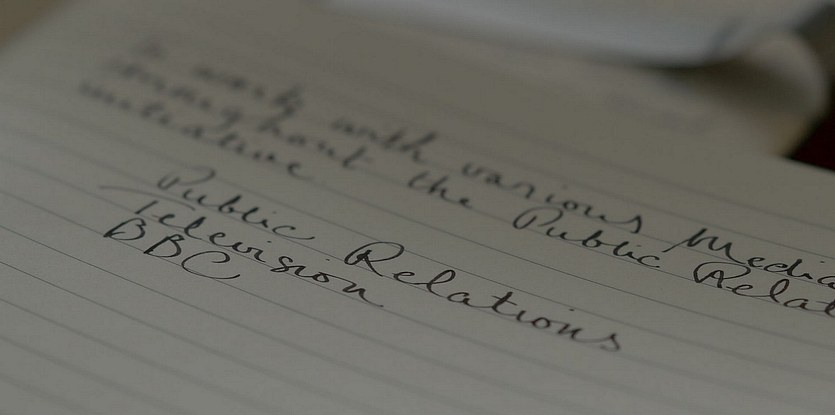 to work with various Media
throughout the Public Relat
initiative
Public Relations
Television
BBC